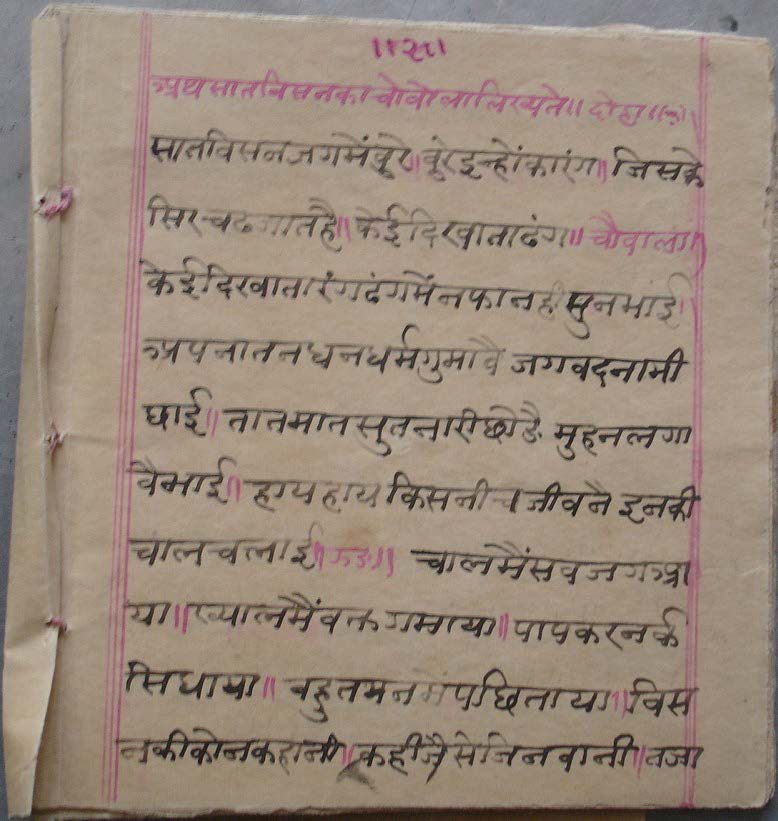 ॥श्री॥
अथ सात विसन का चोवोला लिख्यते॥ दोहा॥
सात विसन जग में वुरे॥ वुरे इन्हों का रंग॥ जिसके
सिर चढ जात है॥ केई दिखाता ढंग॥ चौवाला॥
केई दिखाता रंग ढंग मैं नफा नही सुन भाई॥
अपना तन धन धर्म गुमावै जग वदनामी
छाई॥ तात मात सुत नारी छोडै मुह न लगा
वै भाई॥ हाय हाय किस नीच जीव नै इनकी
चाल चलाई॥ चाल मैं सव जग आ
या॥ ख्याल मैं वक्त गमाया॥ पाप कर नर्क
सिधाया॥ वहुत मन में पछिताया॥ विस
न की कोन कहानी॥ कही जैसे जिनवानी॥ तजा